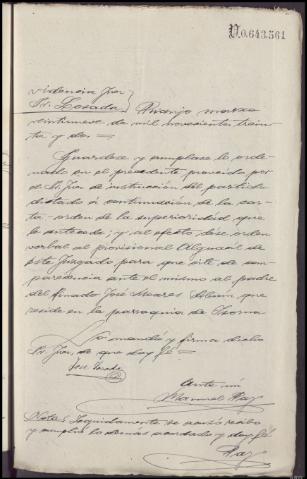 N.0.643.561
Providencia Juez
Sr. Losada. Naranjo marzo
veintinueve de mil novecientos trein-
ta y dos =
Guardese y cumplase lo orde-
nado en el precedente proveido por
el Sr. Juez de instrucción del partido
dictado a continuación de la car-
ta-orden de la superioridad que
la antecede; y al efecto dese orden
verbal al provisional Alguacil de
este Juzgado para que cite de com-
parecencia ante el mismo al padre
del finado José Alvarez que
reside en la parroquia de
Lo mandó y firma dicho
Sr. Juez, de que doy fé =
José Losada
Ante mi
Manuel Paz
Nota: Seguidamente se acusó recibo
y cumplió lo demás acordado y doy fé.
Paz